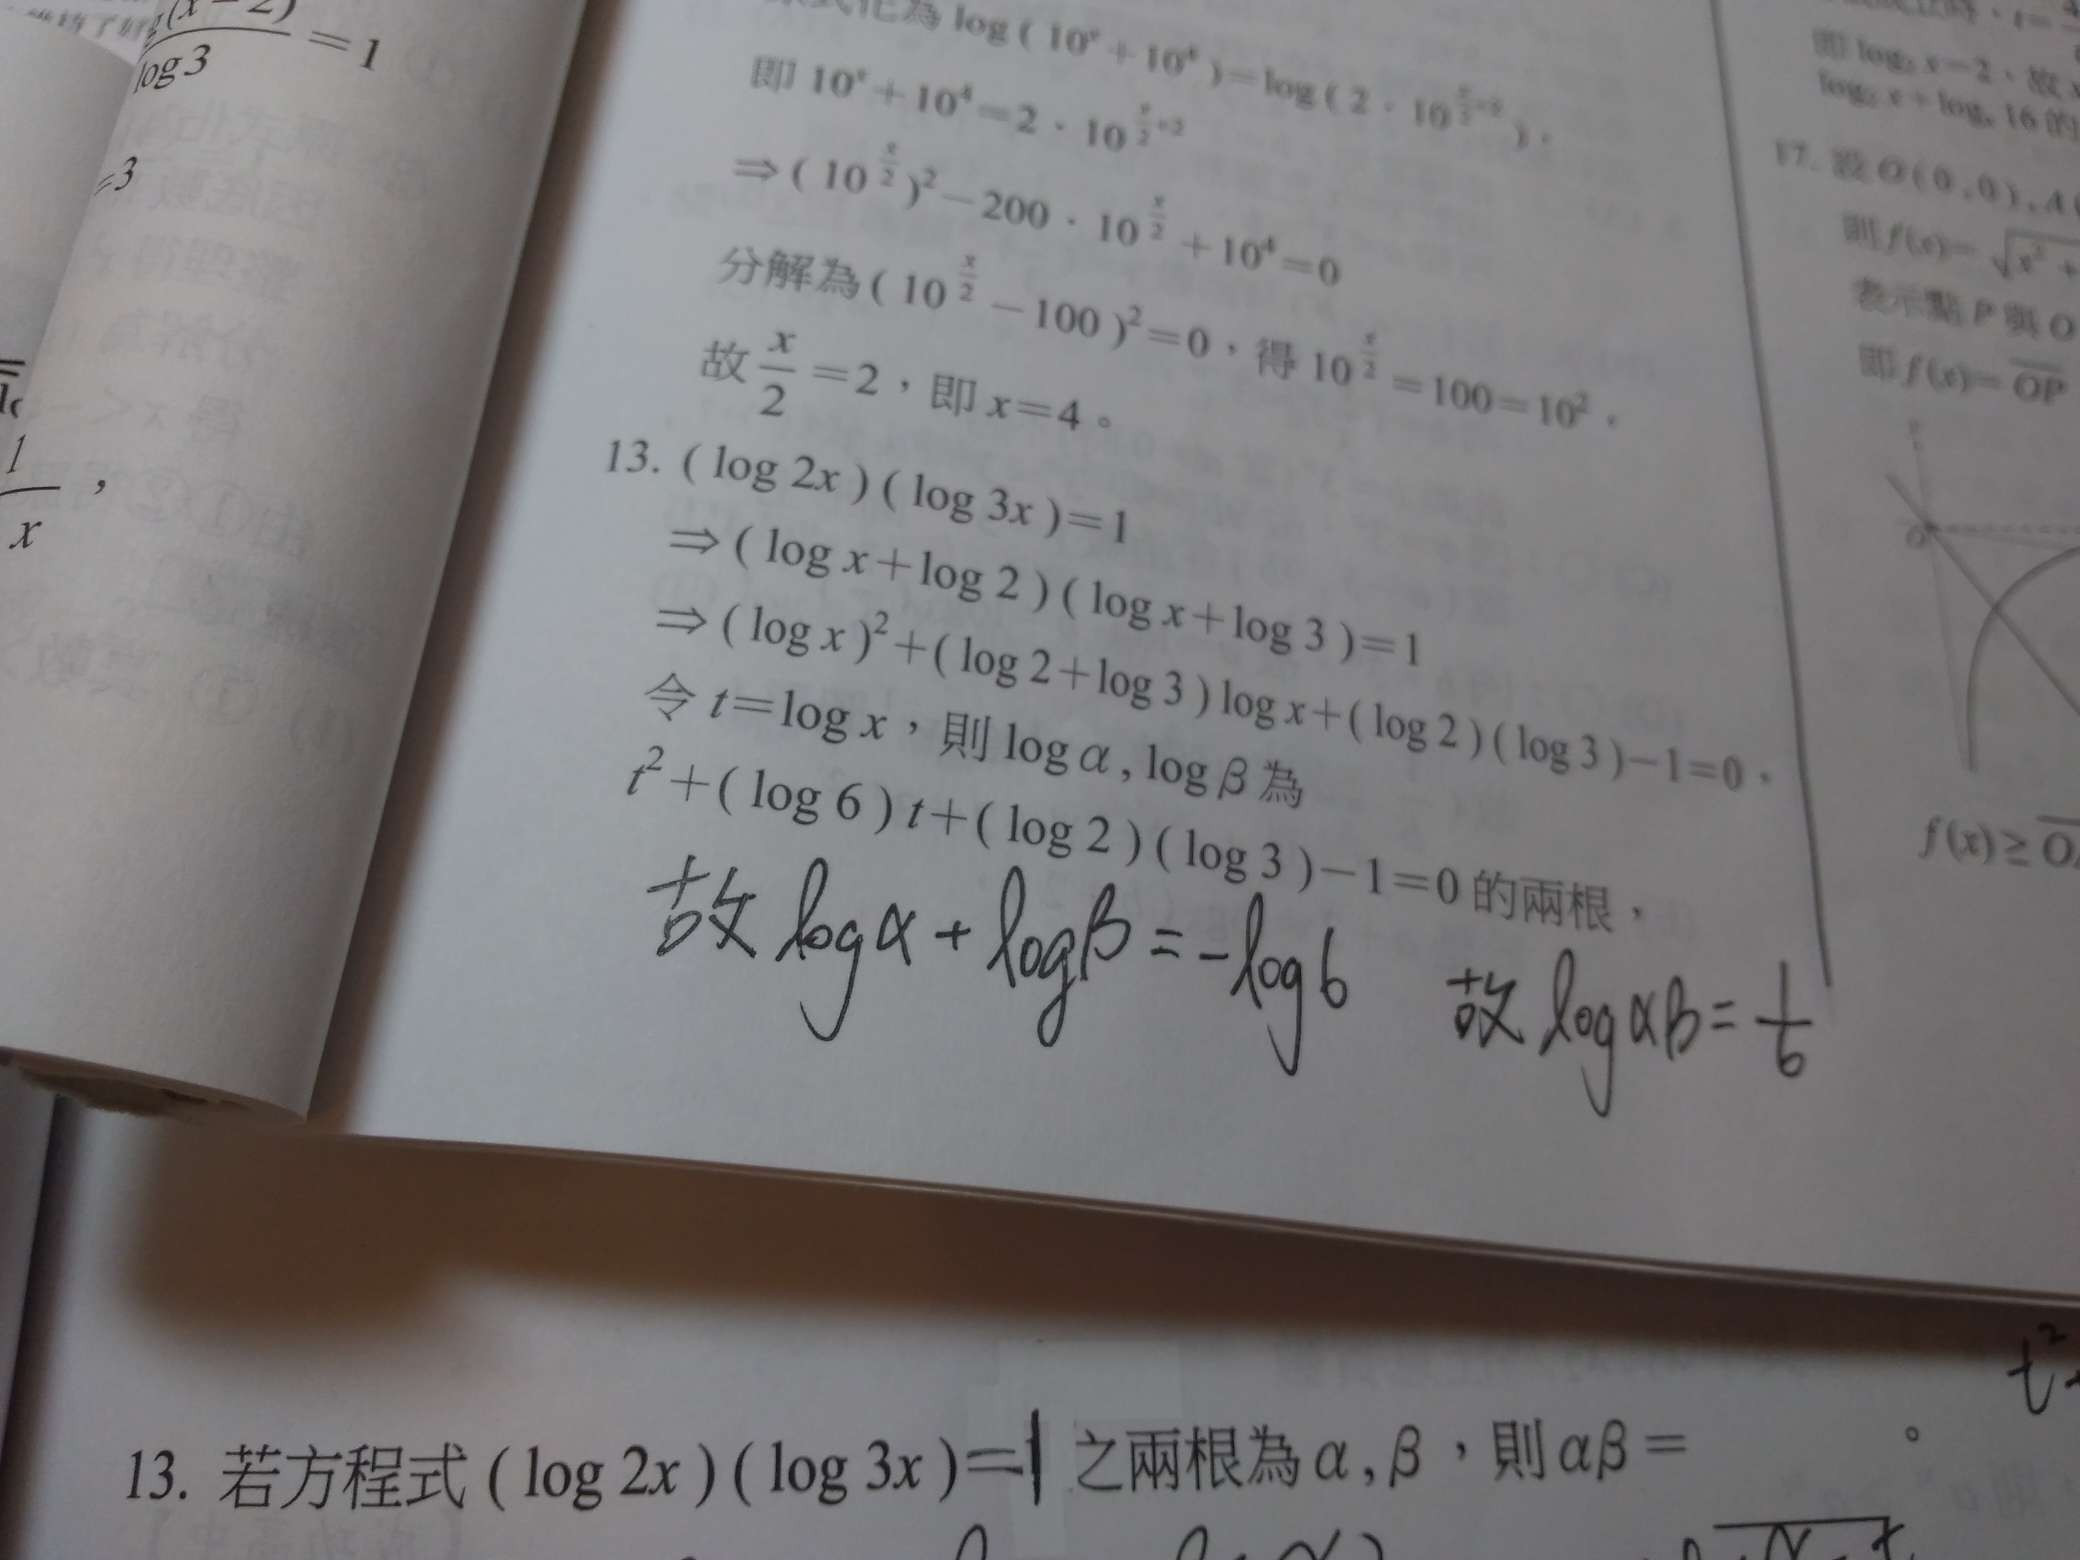 (x−2)
log3
=1
=3
1
x
,
log ( 10ˣ+10⁴ )=log ( 2・10^(x/2+2) )，
即 10ˣ+10⁴=2・10^(x/2+2)
⇒ ( 10^(x/2) )²−200・10^(x/2)+10⁴=0
分解為 ( 10^(x/2)−100 )²=0，得 10^(x/2)=100=10²，
故 x/2=2，即 x=4。
13. ( log 2x ) ( log 3x )=1
⇒ ( log x+log 2 ) ( log x+log 3 )=1
⇒ ( log x )²+( log 2+log 3 ) log x+( log 2 ) ( log 3 )−1=0，
令 t=log x，則 log α , log β 為
t²+( log 6 ) t+( log 2 ) ( log 3 )−1=0 的兩根，
故 logα + logβ = -log6 故 logαβ = 1/6
即 log₂ x=2，故
16 的
17. 設 O ( 0 , 0 ) , A
則 f(x)=√x²+
表示點 P 與 O
即 f(x)=OP
O
f(x)≥O
t²
13. 若方程式 ( log 2x ) ( log 3x )=1 之兩根為 α , β，則 αβ= 。